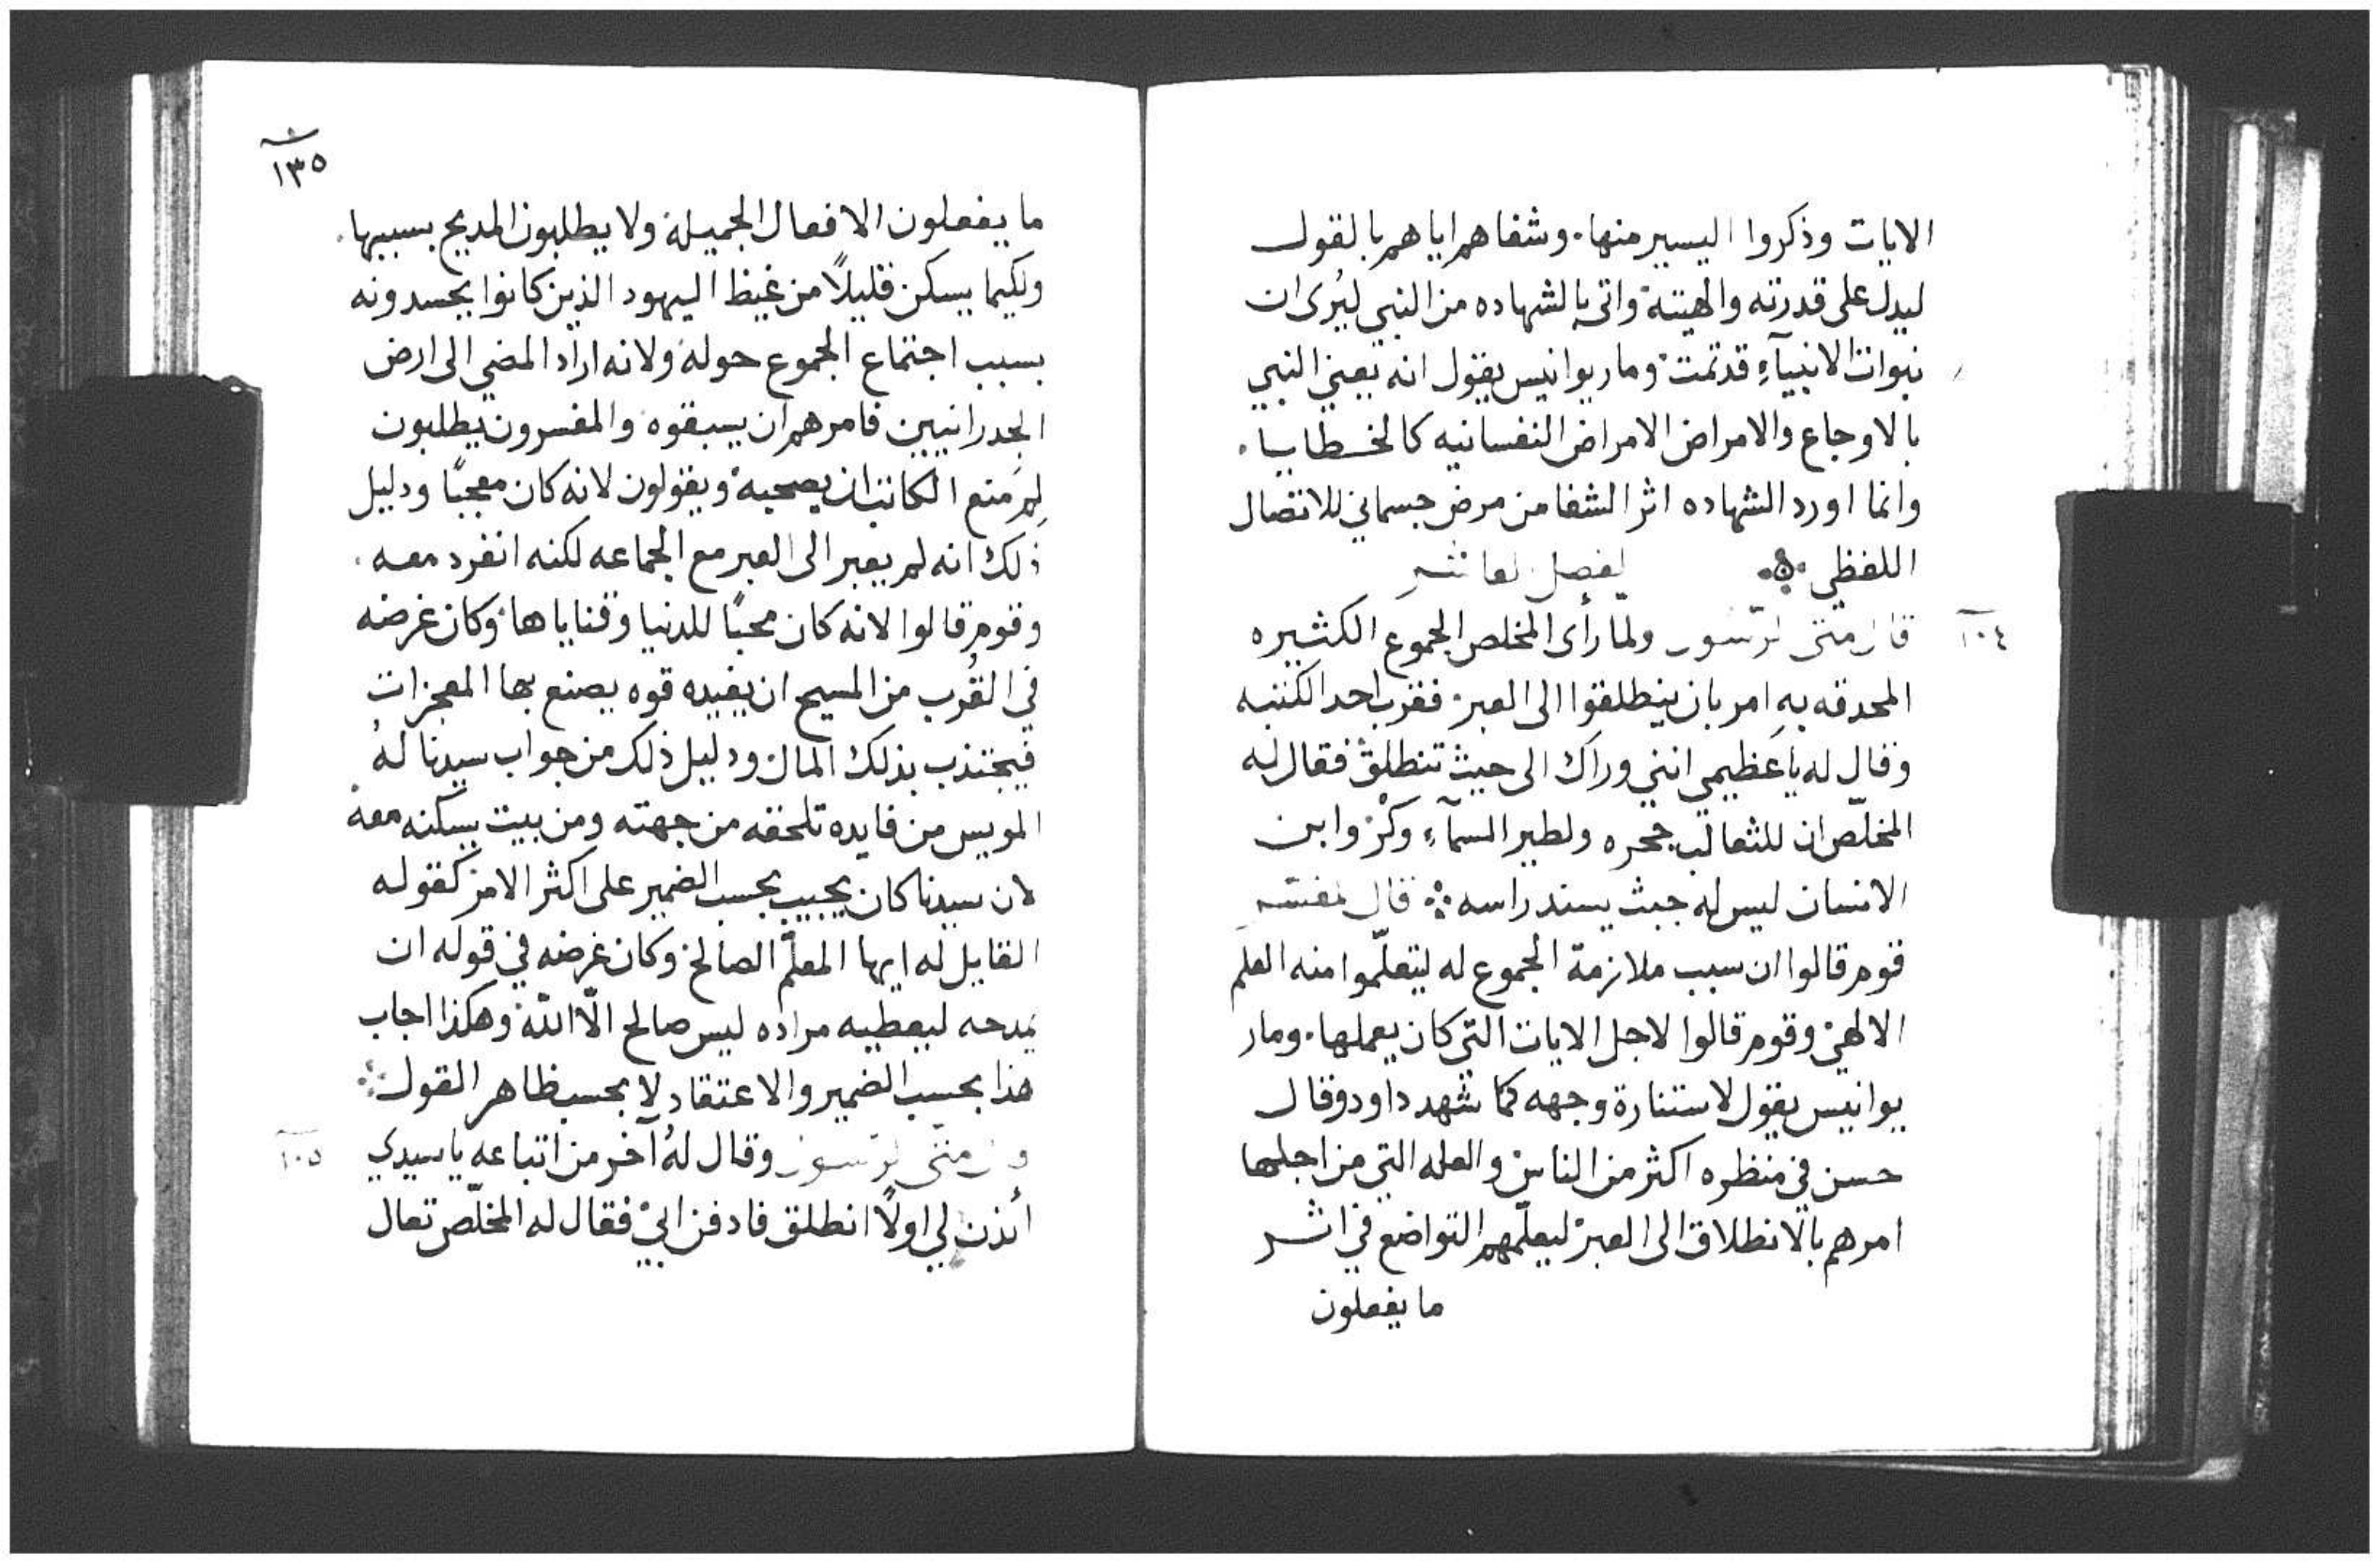 الايات وذكروا اليسير منها. وشفاهم اياهم بالقول
ليدل على قدرته والهيته واتى بالشهاده من النبي ليُرى ان
نبوات الانبيآءِ قد تمت ومار يوانيس يقول انه يعني النبي
بالاوجاع والامراض الامراض النفسانيه كالخطايا.
وانما اورد الشهاده اثر الشفا من مرض جسماني للاتصال
اللفظي
١٠٤
قال متى الرسول ولما رأى المخلص الجموع الكثيره
المحدقه بهِ امر بان ينطلقوا الى العبر فقرب احد الكتبه
وقال له يا عظيمي انني وراك الى حيث تنطلق فقال له
المخلّص ان للثعالب جحره ولطير السمآء وكرٌ وابن
الانسان ليس له حيث يسند راسه قال المفسر
قوم قالوا ان سبب ملازمة الجموع له ليتعلّموا منه العلم
الالهي وقوم قالوا لاجل الايات التي كان يعملها. ومار
يوانيس يقول لاستنارة وجهه كما شهد داود وقال
حسن في منظره اكثر من الناس والعله التي من اجلها
امرهم بالانطلاق الى العبر ليعلّمهم التواضع في اثر
ما يفعلون
١٣٥
ما يفعلون الافعال الجميلة ولا يطلبون المديح بسببها.
ولكيما يسكن قليلاً من غيظ اليهود الذين كانوا يحسدونه
بسبب اجتماع الجموع حوله ولانه اراد المضي الى ارض
الجدرانيين فامرهم ان يسبقوه والمفسرون يطلبون
لِمَ منع الكاتب ان يصحبه ويقولون لانه كان معجبًا ودليل
ذلك انه لم يعبر الى العبر مع الجماعه لكنه انفرد معه.
وقوم قالوا لانه كان محبًا للدنيا وقناياها وكان غرضه
في القُرب من المسيح ان يفيده قوه يصنع بها المعجزات
فيجتذب بذلك المال ودليل ذلك من جواب سيدنا لهُ
المويس من فايده تلحقه من جهته ومن بيت يسكنه معه
لان سيدنا كان يجيب بحسب الضمير على اكثر الامر كقوله
القايل له ايها المعلّم الصالح وكان غرضه في قوله ان
يمدحه ليعطيه مراده ليس صالح الّا اللّه وهكذا اجاب
هذا بحسب الضمير والاعتقاد لا بحسب ظاهر القول
قال متى الرسول وقال لهُ آخر من اتباعه يا سيدي
١٠٥
أئذن لي اولاً انطلق فادفن ابي فقال له المخلّص تعال